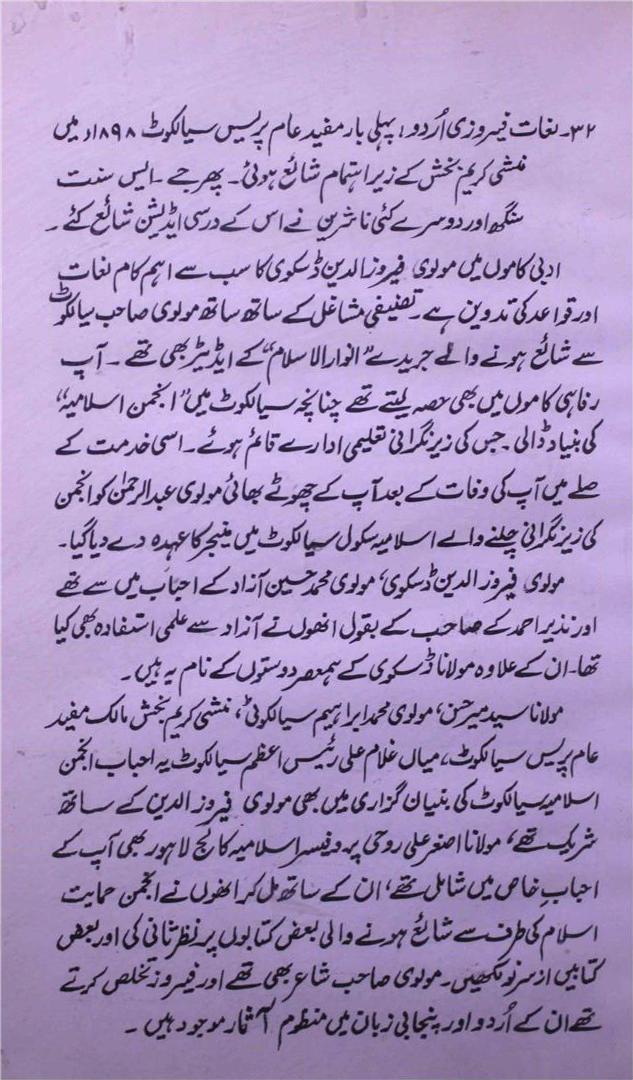 ۳۲۔ لغات فیروزی اُردو: پہلی بار مفید عام پریس سیالکوٹ ۱۸۹۸ء میں
منشی کریم بخش کے زیر اہتمام شائع ہوئی۔ پھر جے۔ ایس سنت
سنگھ اور دوسرے کئی ناشرین نے اس کے درسی ایڈیشن شائع کئے۔
ادبی کاموں میں مولوی فیروز الدین ڈسکوی کا سب سے اہم کام لغات
اور قواعد کی تدوین ہے۔ تصنیفی مشاغل کے ساتھ ساتھ مولوی صاحب سیالکوٹ
سے شائع ہونے والے جریدے "انوار الاسلام" کے ایڈیٹر بھی تھے۔ آپ
رفاہی کاموں میں بھی حصہ لیتے تھے چنانچہ سیالکوٹ میں "انجمن اسلامیہ"
کی بنیاد ڈالی۔ جس کی زیر نگرانی تعلیمی ادارے قائم ہوئے۔ اسی خدمت کے
صلے میں آپ کی وفات کے بعد آپ کے چھوٹے بھائی مولوی عبدالرحمٰن کو انجمن
کی زیر نگرانی چلنے والے اسلامیہ سکول سیالکوٹ میں منیجر کا عہدہ دے دیا گیا۔
مولوی فیروز الدین ڈسکوی، مولوی محمد حسین آزاد کے احباب میں سے تھے
اور نذیر احمد کے صاحب کے بقول انھوں نے آزاد سے علمی استفادہ بھی کیا
تھا۔ ان کے علاوہ مولانا ڈسکوی کے ہمعصر دوستوں کے نام یہ ہیں۔
مولانا سید میر حسن، مولوی محمد ابراہیم سیالکوٹی، منشی کریم بخش مالک مفید
عام پریس سیالکوٹ، میاں غلام علی رئیس اعظم سیالکوٹ یہ احباب انجمن
اسلامیہ سیالکوٹ کی بنیان گزاری میں بھی مولوی فیروز الدین کے ساتھ
شریک تھے، مولانا اصغر علی روحی پروفیسر اسلامیہ کالج لاہور بھی آپ کے
احبابِ خاص میں شامل تھے، ان کے ساتھ مل کر انھوں نے انجمن حمایت
اسلام کی طرف سے شائع ہونے والی بعض کتابوں پر نظر ثانی کی اور بعض
کتابیں از سر نو لکھیں۔ مولوی صاحب شاعر بھی تھے اور فیروز تخلص کرتے
تھے ان کے اُردو اور پنجابی زبان میں منظوم آثار موجود ہیں۔